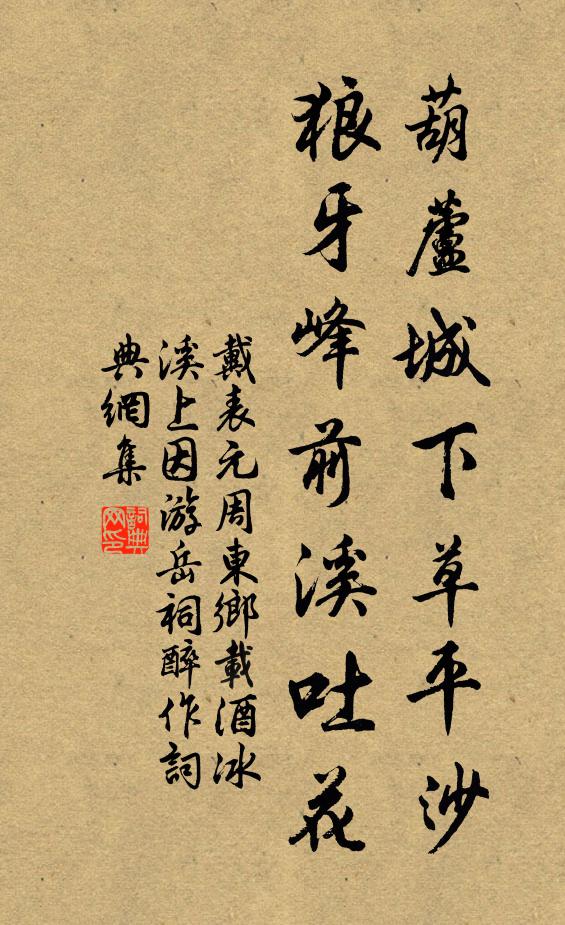 葫蘆城下草平沙
狼牙峰前溪吐花
戴表元周東鄉載酒冰
溪上因游岳祠醉作詞
典網集
詞典网印